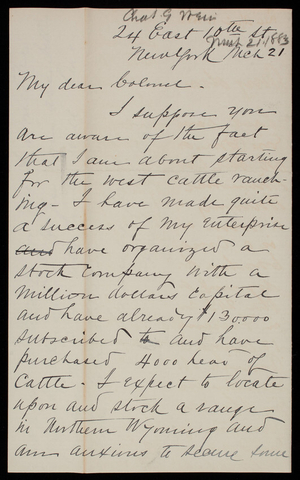 Chas G
24 East 10th St
Mch 21, 1883
New York Mch 21
My dear Colonel.
I suppose you
are aware of the fact
that I am about starting
for the west cattle ranch-
ing - I have made quite
a success of my enterprise
and have organized a
stock company with a
million dollars capital
and have already $130,000
subscribed to and have
purchased 4000 head of
Cattle - I expect to locate
upon and stock a range
in Northern Wyoming and
am anxious to secure some